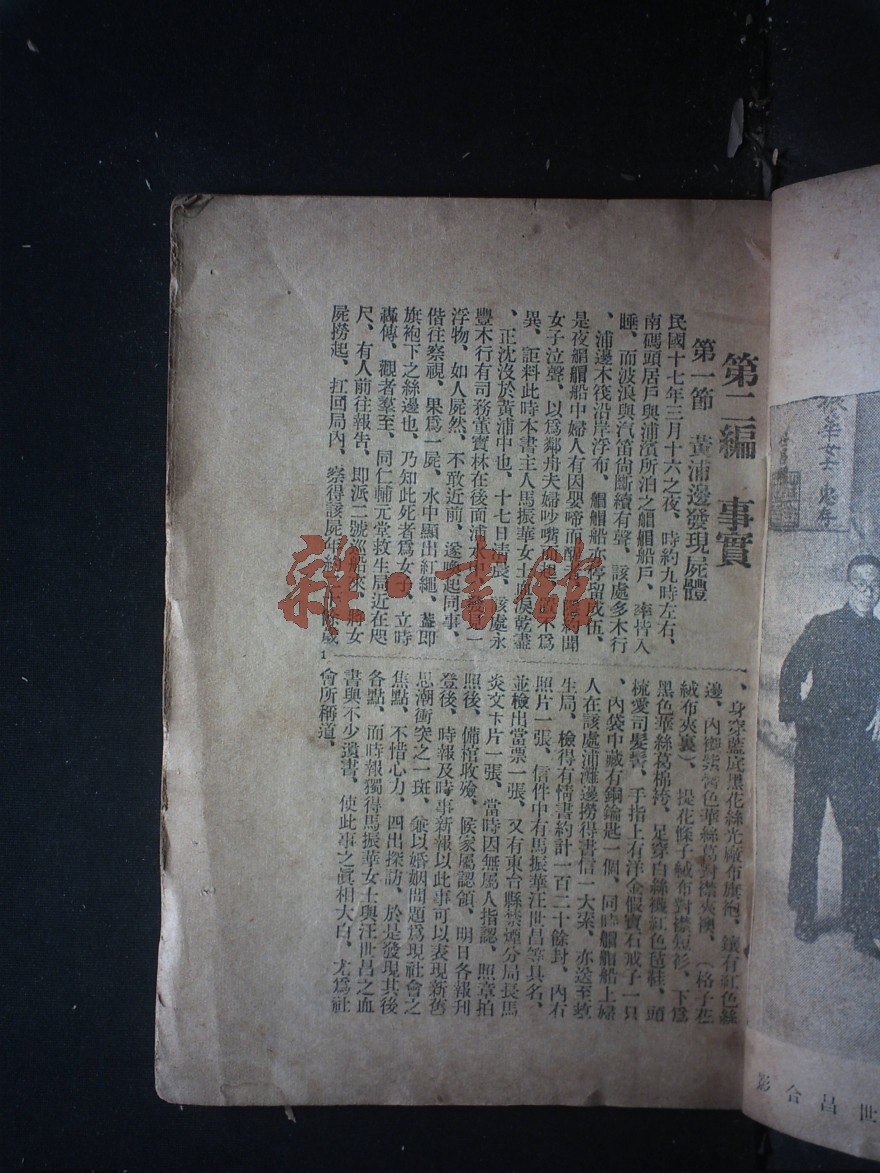 第二編　事實
第一節　黃浦邊發現屍體
民國十七年三月十六之夜、時約九時左右、
南碼頭居戶與浦濱所泊之艒艒船戶、率皆入
睡、而波浪與汽笛尚斷續有聲、該處多木行
、浦邊木筏沿岸浮布、艒艒船亦停留成伍、
是夜艒艒船中婦人有因嬰啼而醒者、隱約聞
女子泣聲、以爲鄰舟夫婦吵嘴而起、不爲
異、詎料此時本書主人馬振華女士、淚乾盡
、正沈沒於黃浦中也、十七日清晨、該處永
豐木行有司務董寶林在後面浦水中、一
浮物、如人屍然、不敢近前、遂喚起同事、
偕往察視、果爲一屍、水中顯出紅繩、蓋即
旗袍下之絲邊也、乃知此死者爲女子、立時
轟傳、觀者羣至、同仁輔元堂救生局近在咫
尺、有人前往報告、即派二號巡船來、將女
屍撈起、扛回局內、察得該屍年約餘歲
、身穿藍底黑花絲光廠布旗袍、鑲有紅色絲
邊、內襯紫醬色華絲葛對襟夾襖、（格子花
絨布夾裏）、提花條子絨布對襟短衫、下爲
黑色華絲葛棉袴、足穿白絲襪紅色毡鞋、頭
梳愛司髮髻、手指上有洋金假寶石戒子一只
、內袋中藏有銅鑰匙一個、同時艒艒船上婦
人在該處浦灘邊撈得書信一大束、亦送至救
生局、檢得有情書約計一百二十餘封、內有
照片一張、信件中有馬振華汪世昌等具名、
並檢出當票一張、又有東台縣禁煙分局長馬
炎文卡片一張、當時因無屬人指認、照章拍
照後、備棺收殮、候家屬認領、明日各報刊
登後、時報及時事新報以此事可以表現新舊
思潮衝突之一斑、兼以婚姻問題爲現社會之
焦點、不惜心力、四出探訪、於是發現其後
各點、而時報獨得馬振華女士與汪世昌之血
書與不少遺書、使此事之眞相大白、尤爲社
會所稱道、
1
雜·書館
華女士
世昌合影